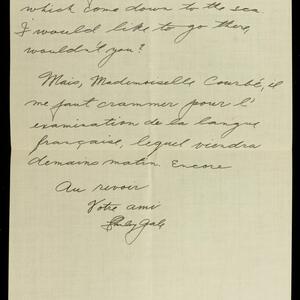 which come down to the sea.
I would like to go there,
wouldn't you?
Mais, Mademoiselle Courbé, il
me faut crammer pour l'
examination de la langue
française, lequel viendra
demains matin. Encore
Au revoir
Votre ami